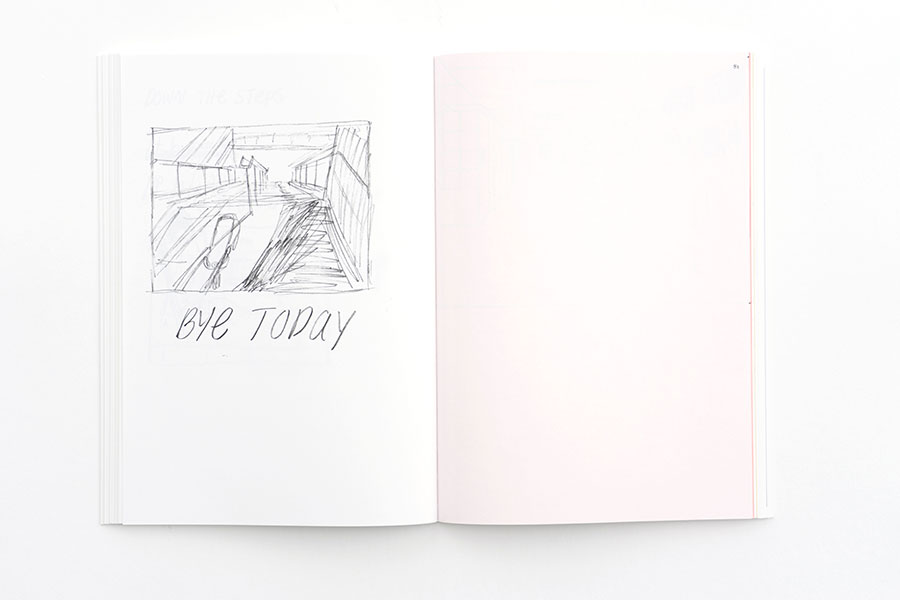 DOWN THE STEPS
BYE TODAY